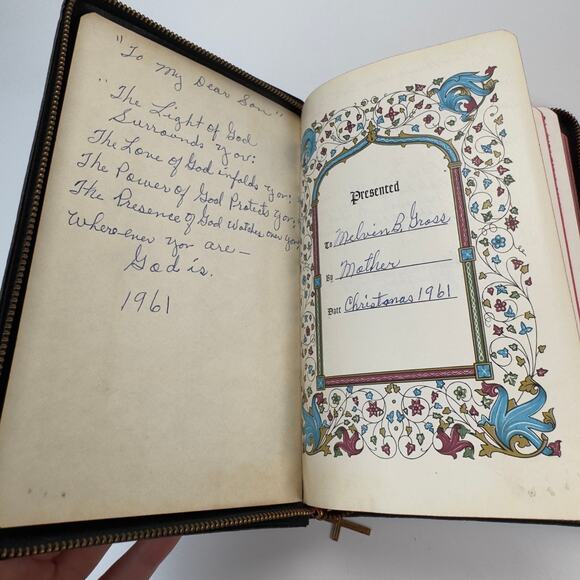 "To My Dear Son"
"The Light of God
Surrounds you:
The Love of God infolds you:
The Power of God Protects you:
The Presence of God Watches over you
Where-ever you are —
God is.
1961
Presented
To Melvin B. Gross
By Mother
Date Christmas 1961